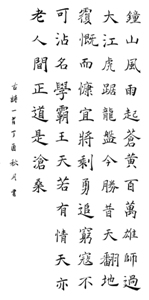 鐘山風雨起蒼黃百萬雄師過
大江虎踞龍盤今勝昔天翻地
覆慨而慷宜將剩勇追窮寇不
可沽名學霸王天若有情天亦
老人間正道是滄桑
古詩一首丁酉秋月書